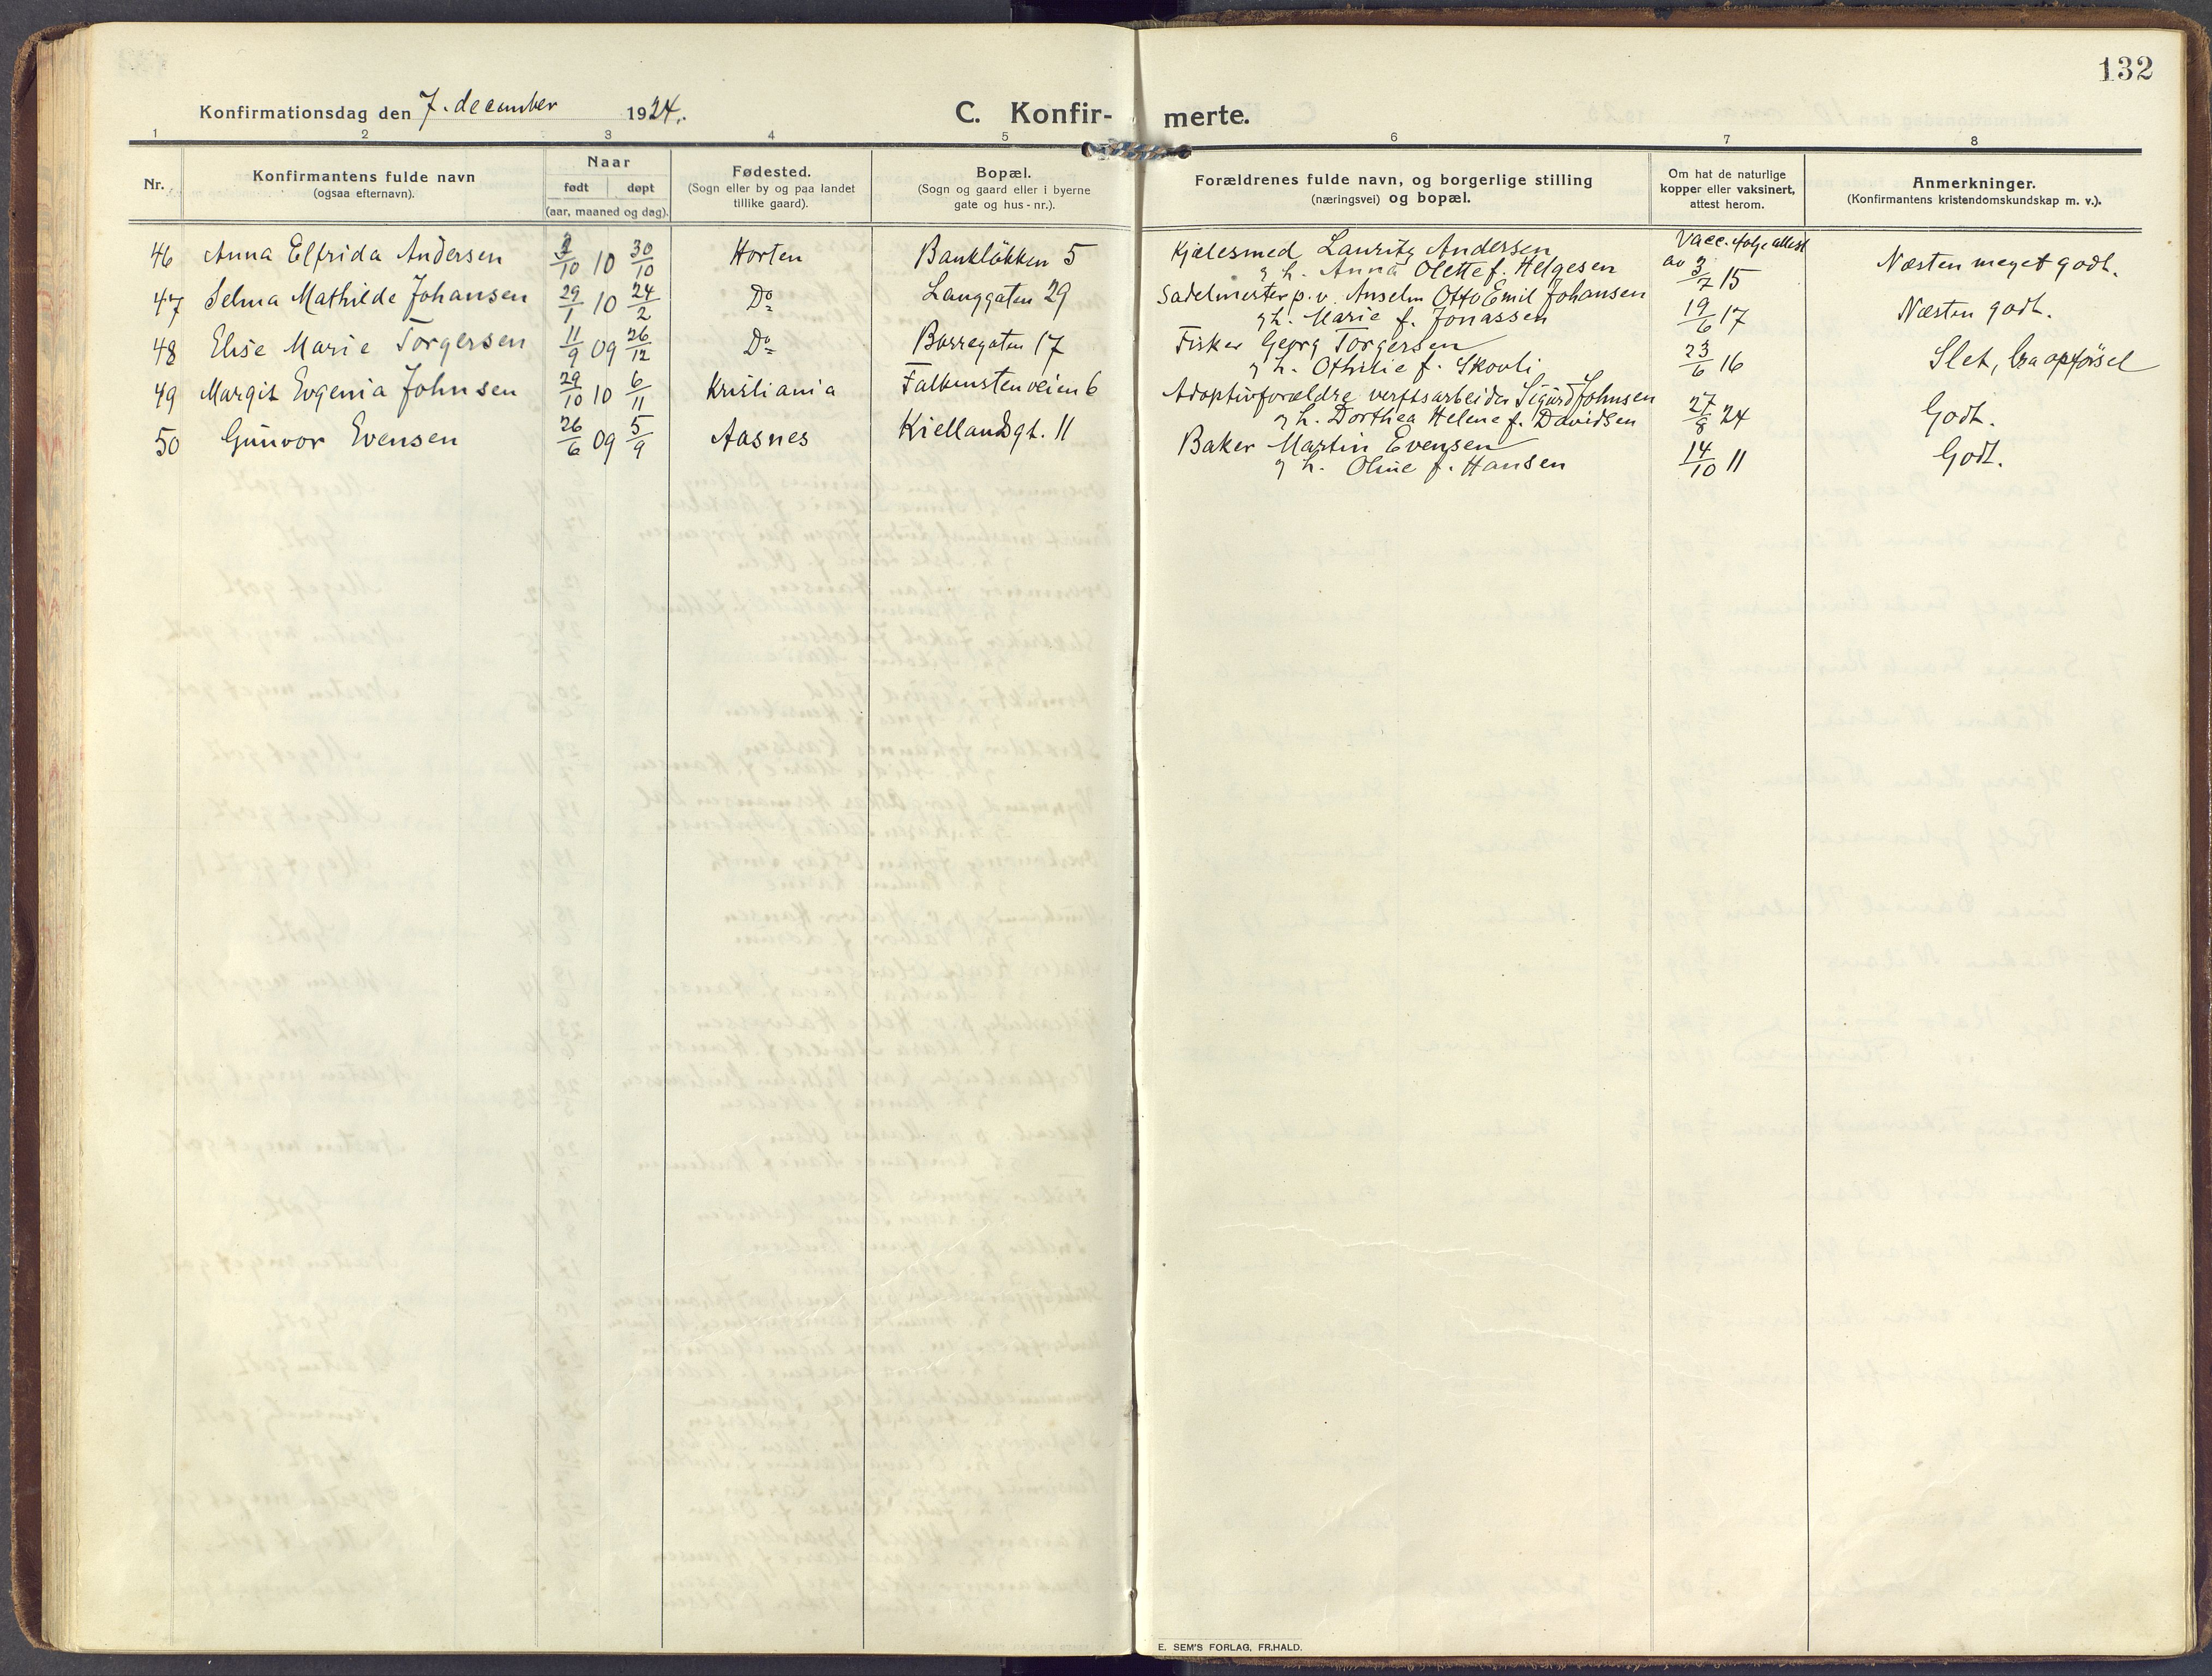 132
Konfirmationsdag den 7. december 1924.
C. Konfir- merte.
1 2 3 4 5 6 7 8
Nr.
Konfirmantens fulde navn
(ogsaa efternavn).
Naar
født døpt
(aar, maaned og dag).
Fødested.
(Sogn eller by og paa landet
tillike gaard).
Bopæl.
(Sogn og gaard eller i byerne
gate og hus-nr.).
Forældrenes fulde navn, og borgerlige stilling
(næringsvei) og bopæl.
Om hat de naturlige
kopper eller vaksinert,
attest herom.
Anmerkninger.
(Konfirmantens kristendomskundskap m. v.).
46 Anna Elfrida Andersen /10 10 30/10 Horten Bankløkken 5 Kjelesmed Lauritz Andersen Vacc. ifølge attest
o h. Anna Olette f. Helgesen av 3/7 15 Næsten meget godt.
47 Selma Mathilde Johansen 29/1 10 24/2 Do Langgaten 29 Sadelmester p. v. Anselm Otto Emil Johansen
o h. Marie f. Jonassen 19/6 17 Næsten godt.
48 Elise Marie Torgersen 11/9 09 26/12 Do Borregaten 17 Fisker Georg Torgersen
o h. Othilie f. Skovli 23/6 16 Slet, bra opførsel
49 Margit Evgenia Johnsen 29/10 10 6/11 Kristiania Falkenstenveien 6 Adoptivforældre verftsarbeider Sigurd Johnsen
o h. Dorthea Helene f. Davidsen 27/8 24 Godt.
50 Gunvor Evensen 26/6 09 5/9 Aasnes Kiellandsgt. 11 Baker Martin Evensen
o h. Oline f. Hansen 14/10 11 Godt.
E. SEM'S FORLAG, FR.HALD.